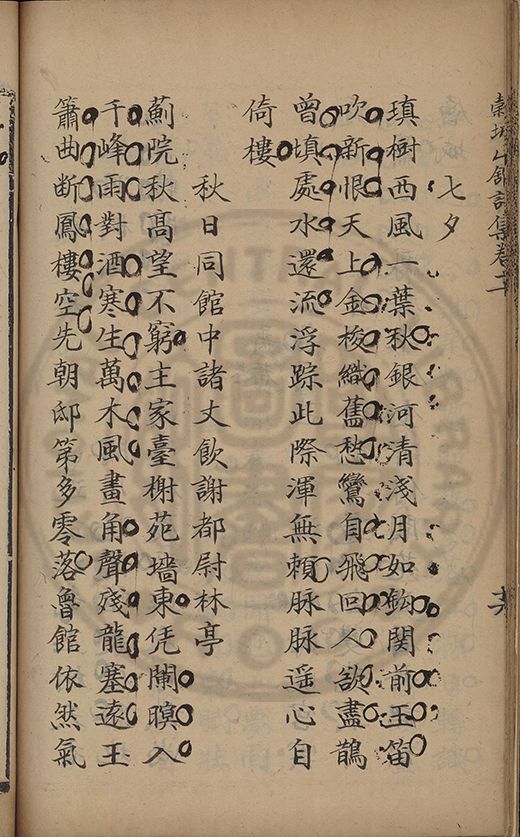 山館詩集卷
七夕
瑱樹西風一葉秋銀河清淺月如鈎関前玉笛
吹新恨天上金梭織舊愁鸞自飛回人欲盡鵲
曾填處水還流浮踪此際渾無頼脉脉遥心自
倚樓
秋日同館中諸丈飲謝都尉林亭
薊院秋髙望不窮主家臺榭苑墻東凭闌暝入
千峰雨對酒寒生萬木風畫角聲殘龍塞遠玉
簫曲断鳳樓空先朝邸第多零落魯館依然氣